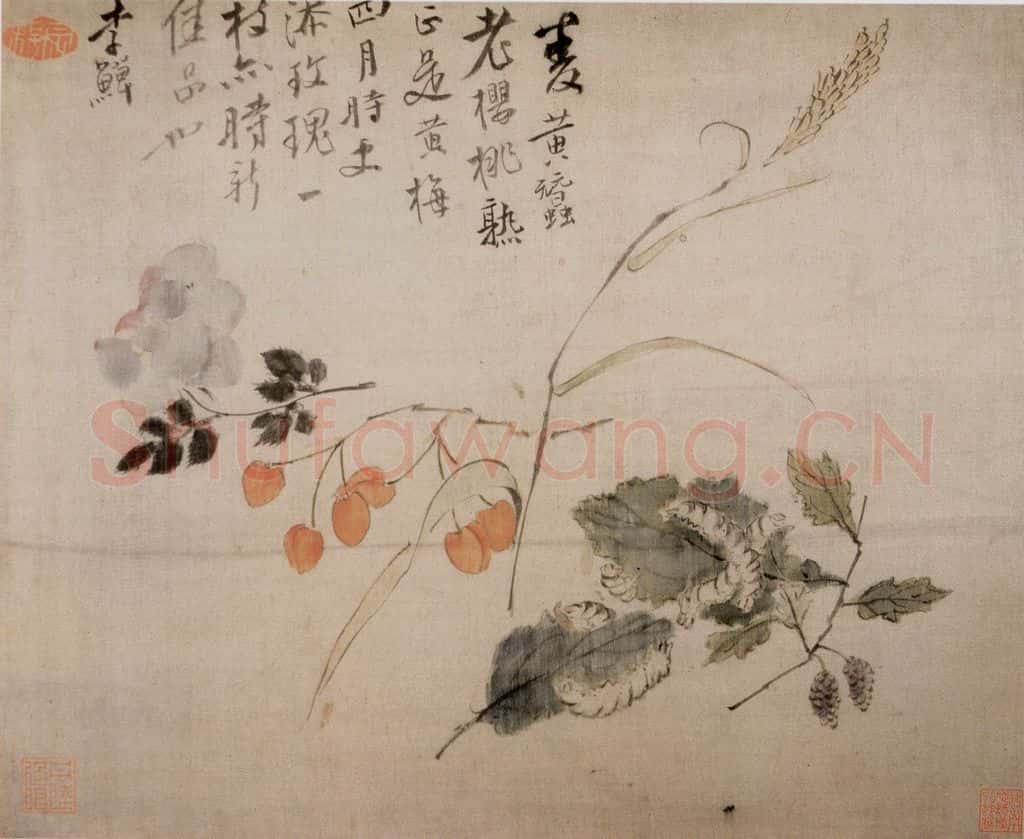 麦黄蠶
老櫻桃熟
正是黄梅
四月時更
添玫瑰一
枝亦時新
佳品也
李鱓
Shufawang.CN